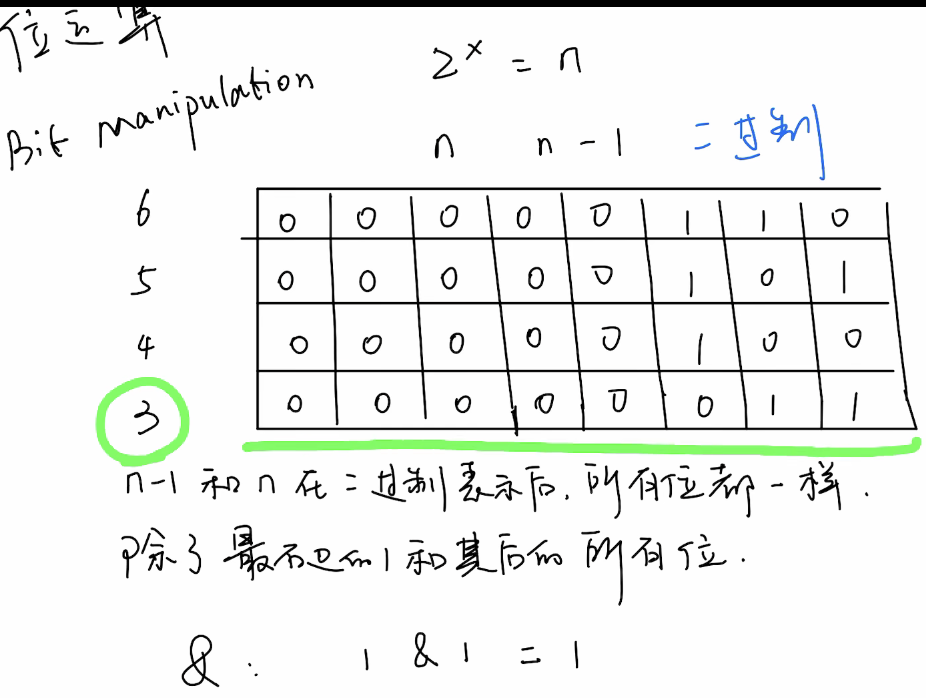 位运算
2^x = n
Bit manipulation
n n - 1 二进制
6 0 0 0 0 0 1 1 0
5 0 0 0 0 0 1 0 1
4 0 0 0 0 0 1 0 0
3 0 0 0 0 0 0 1 1
n-1 和 n 在二进制表示后, 所有位都一样.
除了最右边的1和其后的所有位.
&: 1 & 1 = 1